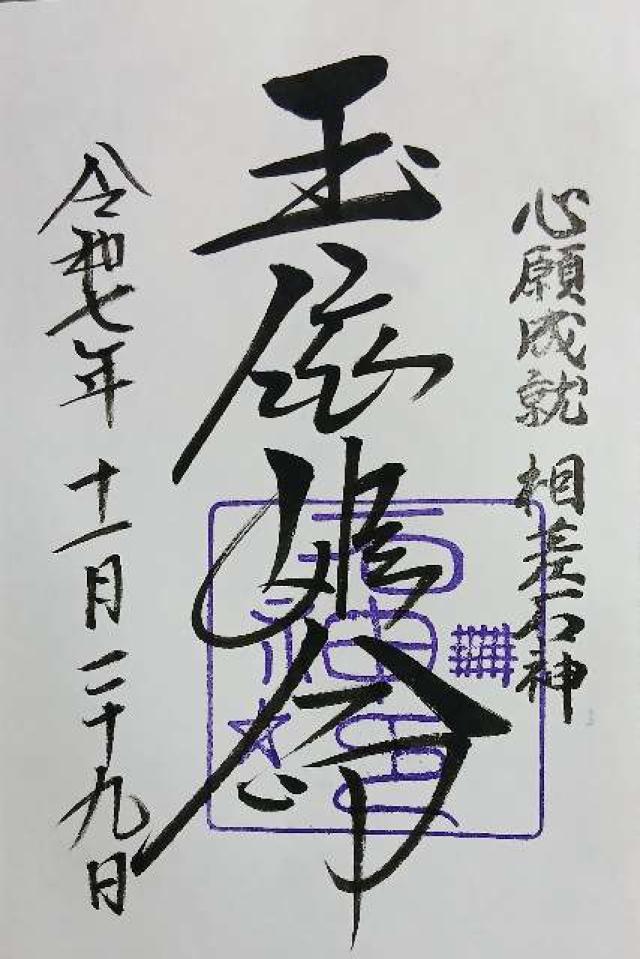 心願成就 相差石神
玉依姫命
令和七年十一月二十九日
石神